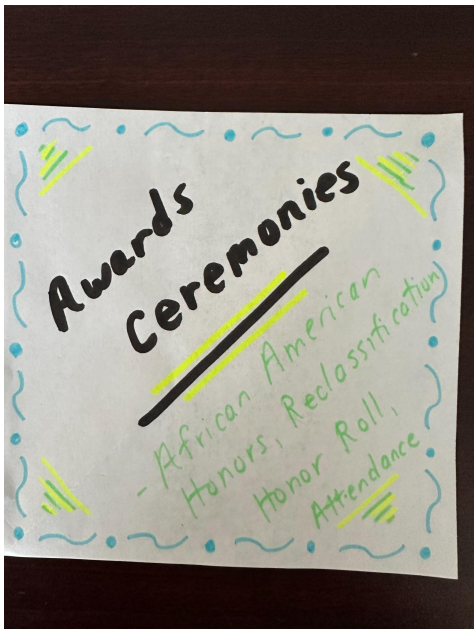 Awards
Ceremonies
- African American
Honors, Reclassification
Honor Roll,
Attendance